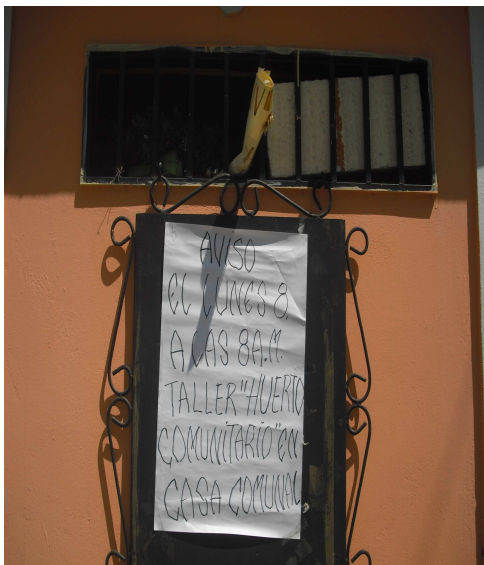 AVISO
EL LUNES 8
A LAS 8 A.M.
TALLER "HUERTO
COMUNITARIO" EN
CASA COMUNAL